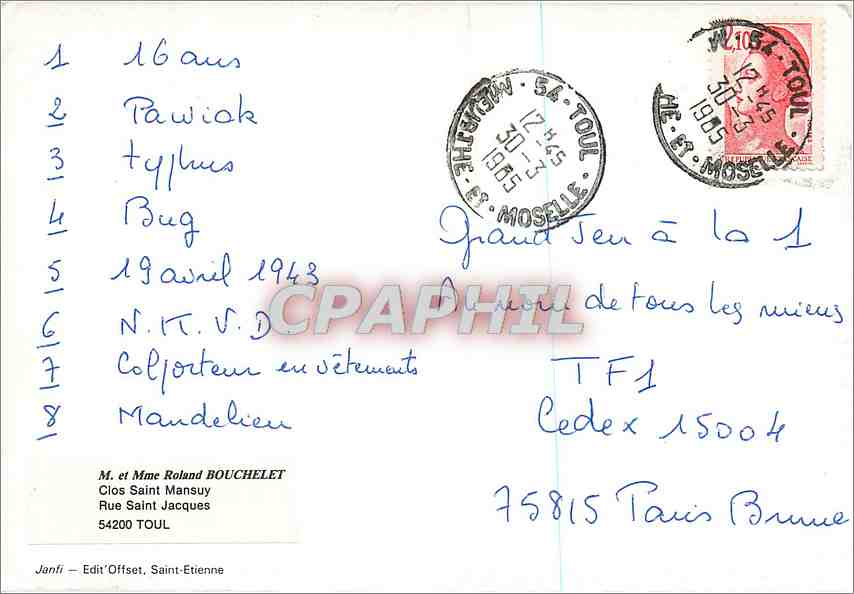 1 16 ans
2 Pawiak
3 typhus
4 Bug
5 19 avril 1943
6 N.K.V.D.
7 Colporteur en vêtements
8 Mandelieu
M. et Mme Roland BOUCHELET
Clos Saint Mansuy
Rue Saint Jacques
54200 TOUL
Janfi – Edit'Offset, Saint-Etienne
54 - TOUL
12H45
30-3
1985
MEURTHE - ET - MOSELLE
2,10
54 - TOUL
12H45
30-3
1985
HE - ET - MOSELLE
Grand Jeu à la 1
Au nom de tous les miens
TF1
Cedex 15004
75815 Paris Brune
CPAPHIL